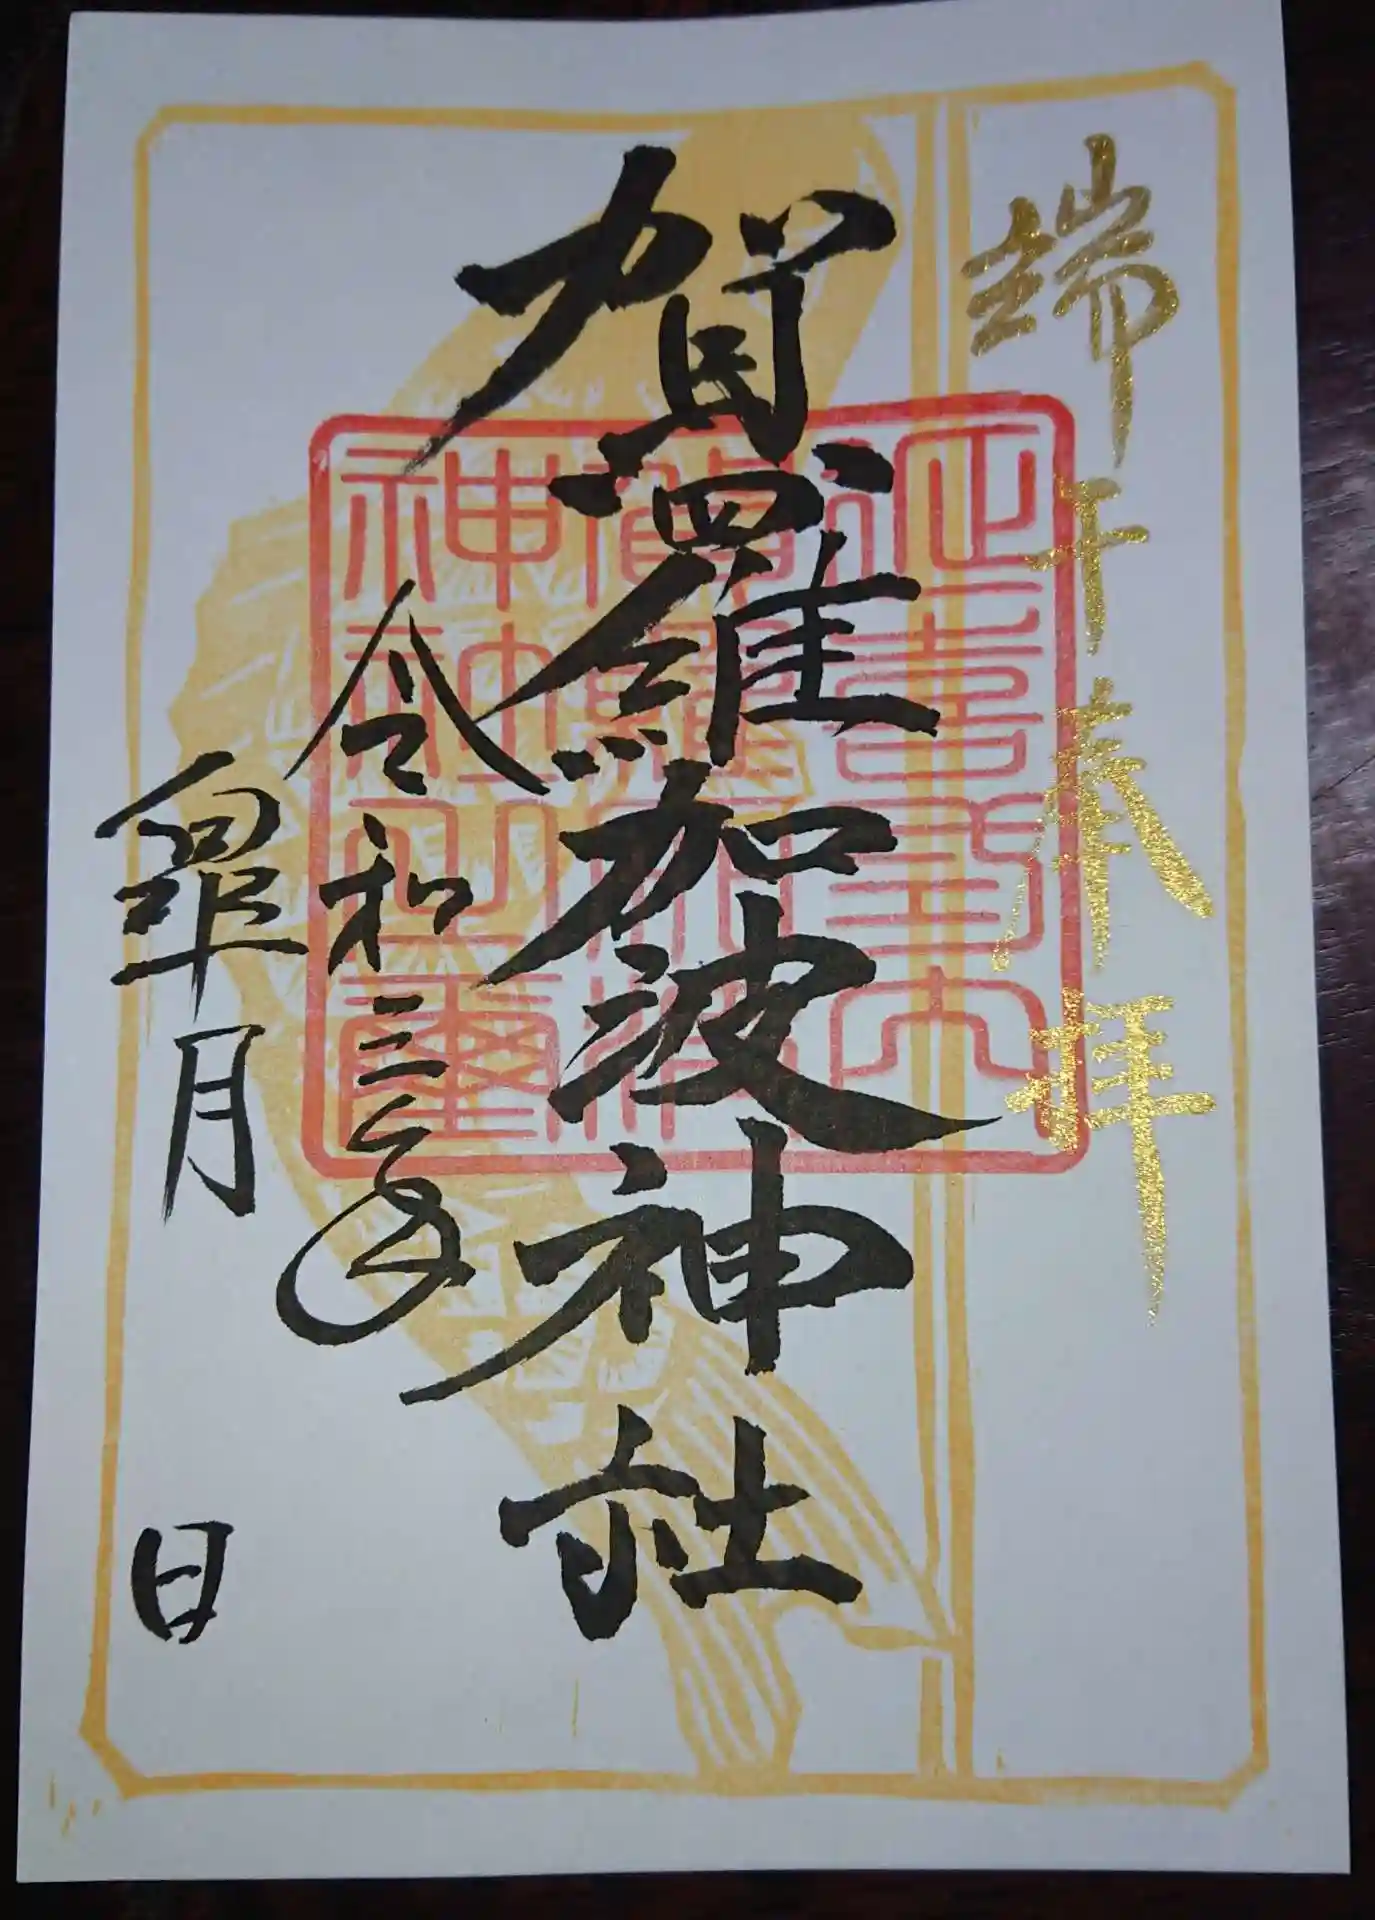 端午奉拝
賀羅加波神社
令和三年
皐月　日
延喜式内
賀羅加波
神社之璽